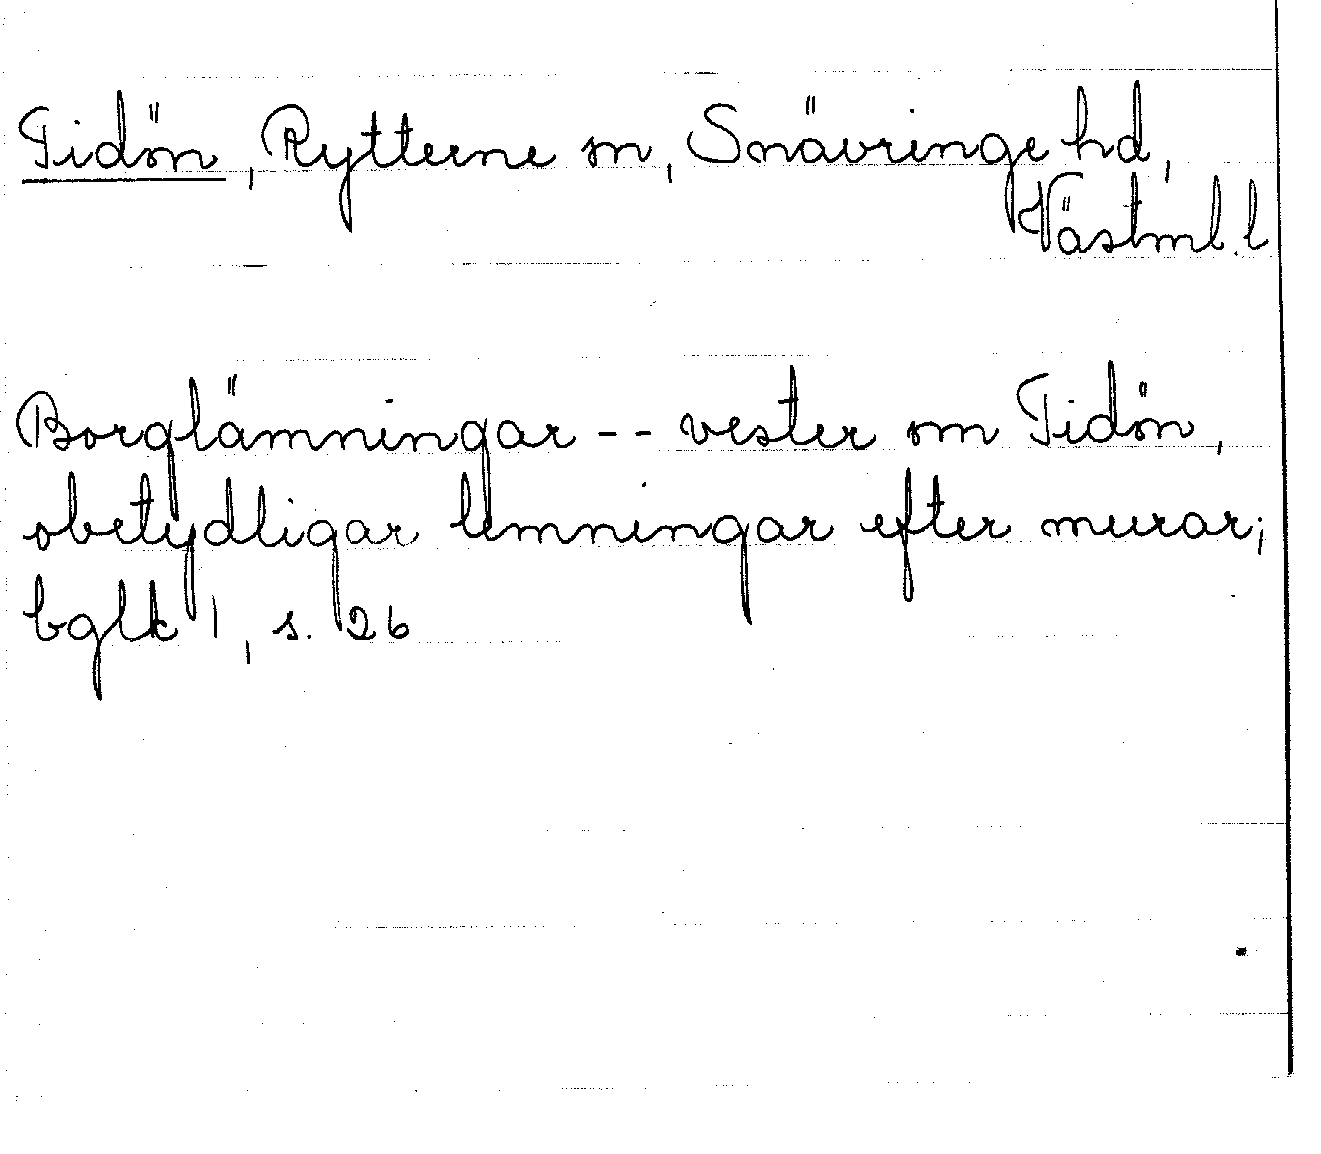 Tidön, Rytterne sn, Snävringe hd,
Västml. l
Borglämningar -- vester om Tidön,
obetydligar lemningar efter murar;
bglk 1, s. 26